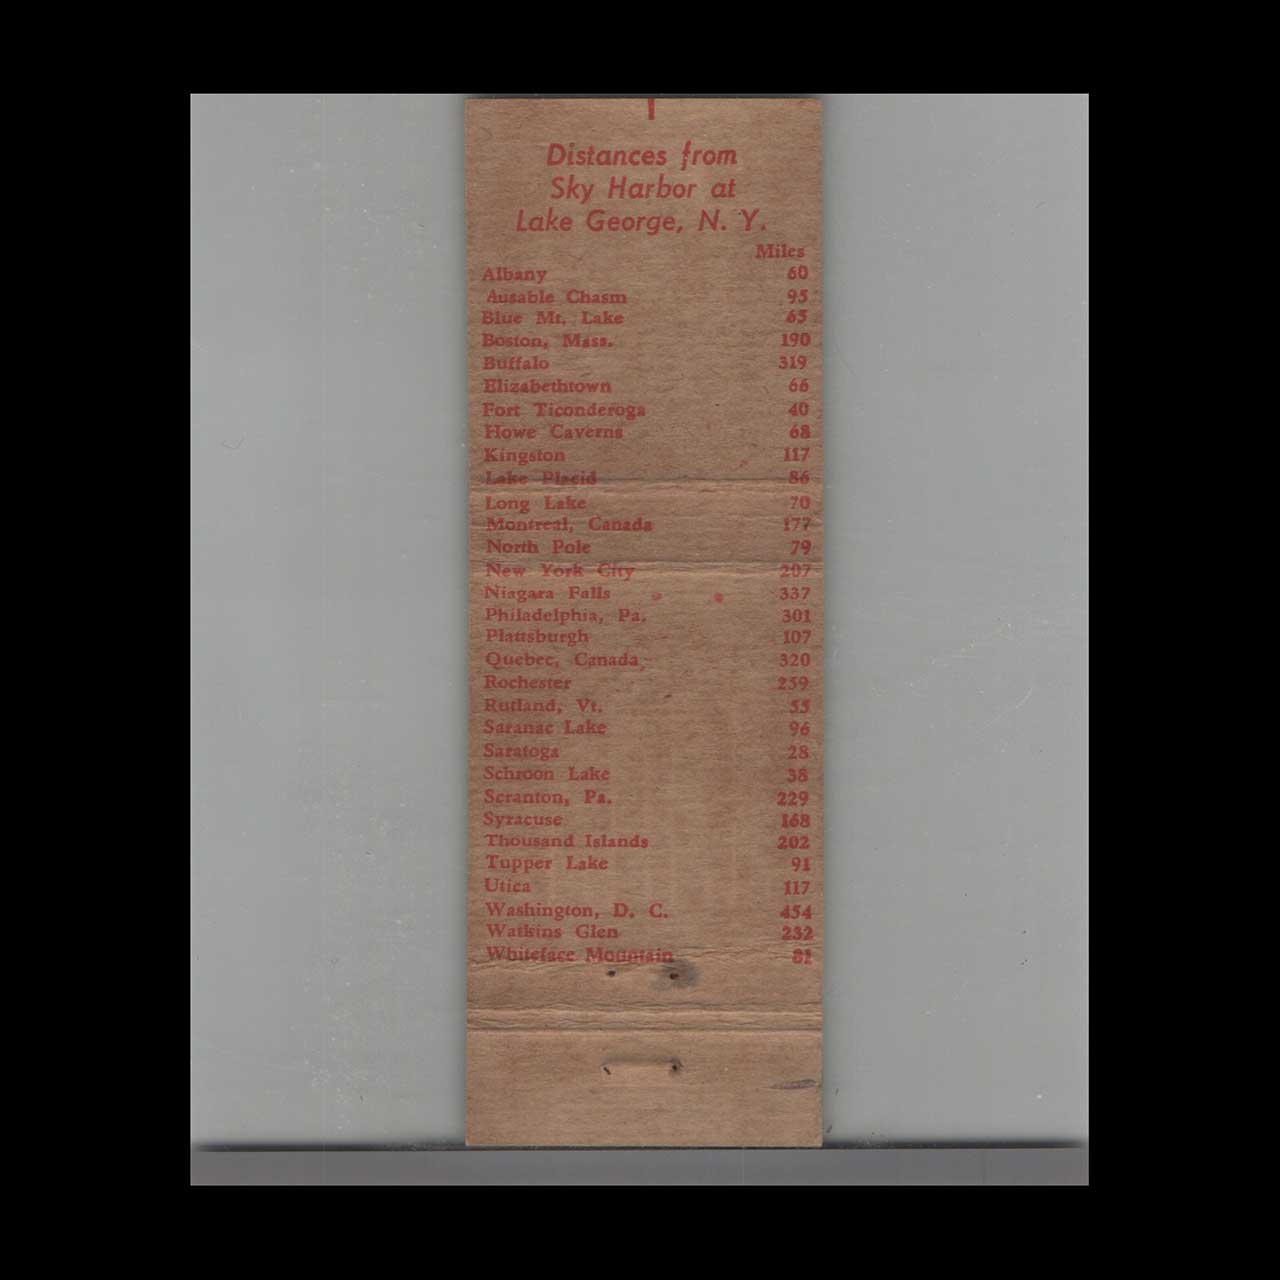 Distances from
Sky Harbor at
Lake George, N. Y.
Miles
Albany 60
Ausable Chasm 95
Blue Mt. Lake 65
Boston, Mass. 190
Buffalo 319
Elizabethtown 66
Fort Ticonderoga 40
Howe Caverns 68
Kingston 117
Lake Placid 86
Long Lake 70
Montreal, Canada 177
North Pole 79
New York City 207
Niagara Falls 337
Philadelphia, Pa. 301
Plattsburgh 107
Quebec, Canada 320
Rochester 259
Rutland, Vt. 55
Saranac Lake 96
Saratoga 28
Schroon Lake 38
Scranton, Pa. 229
Syracuse 168
Thousand Islands 202
Tupper Lake 91
Utica 117
Washington, D. C. 454
Watkins Glen 232
Whiteface Mountain 81